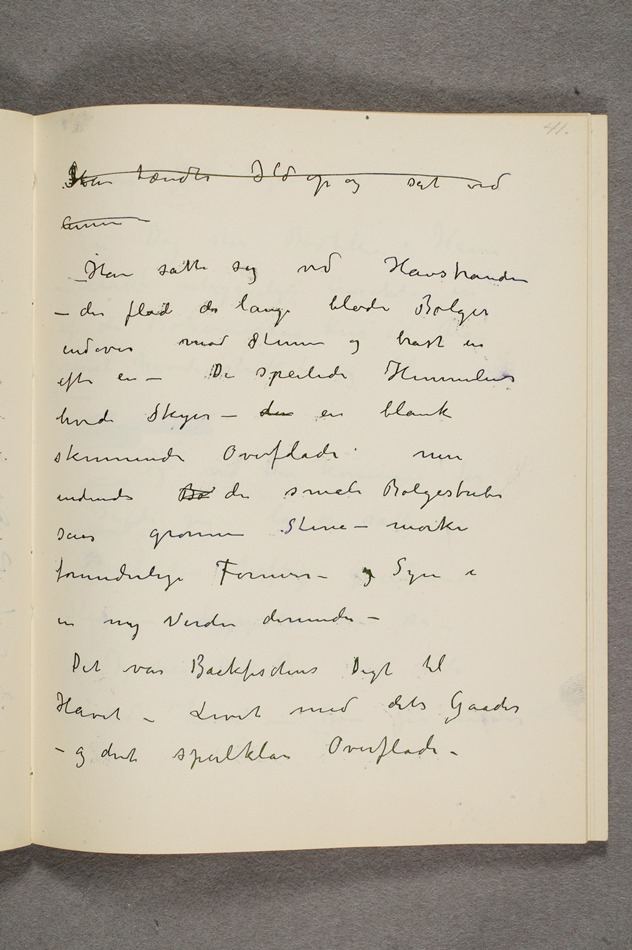 41.
Han tændte Ild op og sat ved
Han satte seg ved Havstranden
– der flød de lange bløde Bølger
indover mod Stenene og brast en
efter en – De speilede Himmelens
hvide Skyer – en blank
skinnende Overflade men
indunder Bø de smale Bølgestriber
saes grønne Stene – mørke
forunderlige Former – og Syn i
en ny Verden derunder –
Det var Backfischens Digt til
Havet – Livet med dets Gaader
– og dets speilklare Overflade –